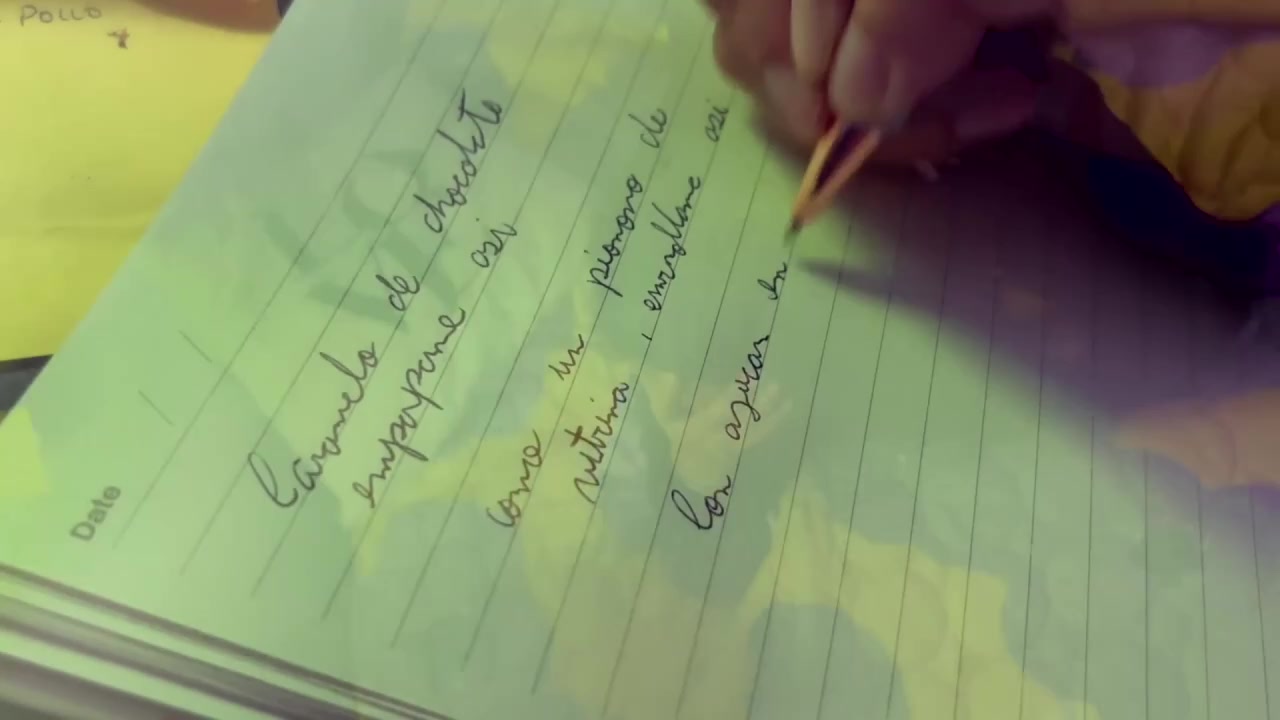 POLLO
Date
Caramelo de chocolate
empapame asi
como un pionono de
vitrina, enrollame asi
Con azucar en